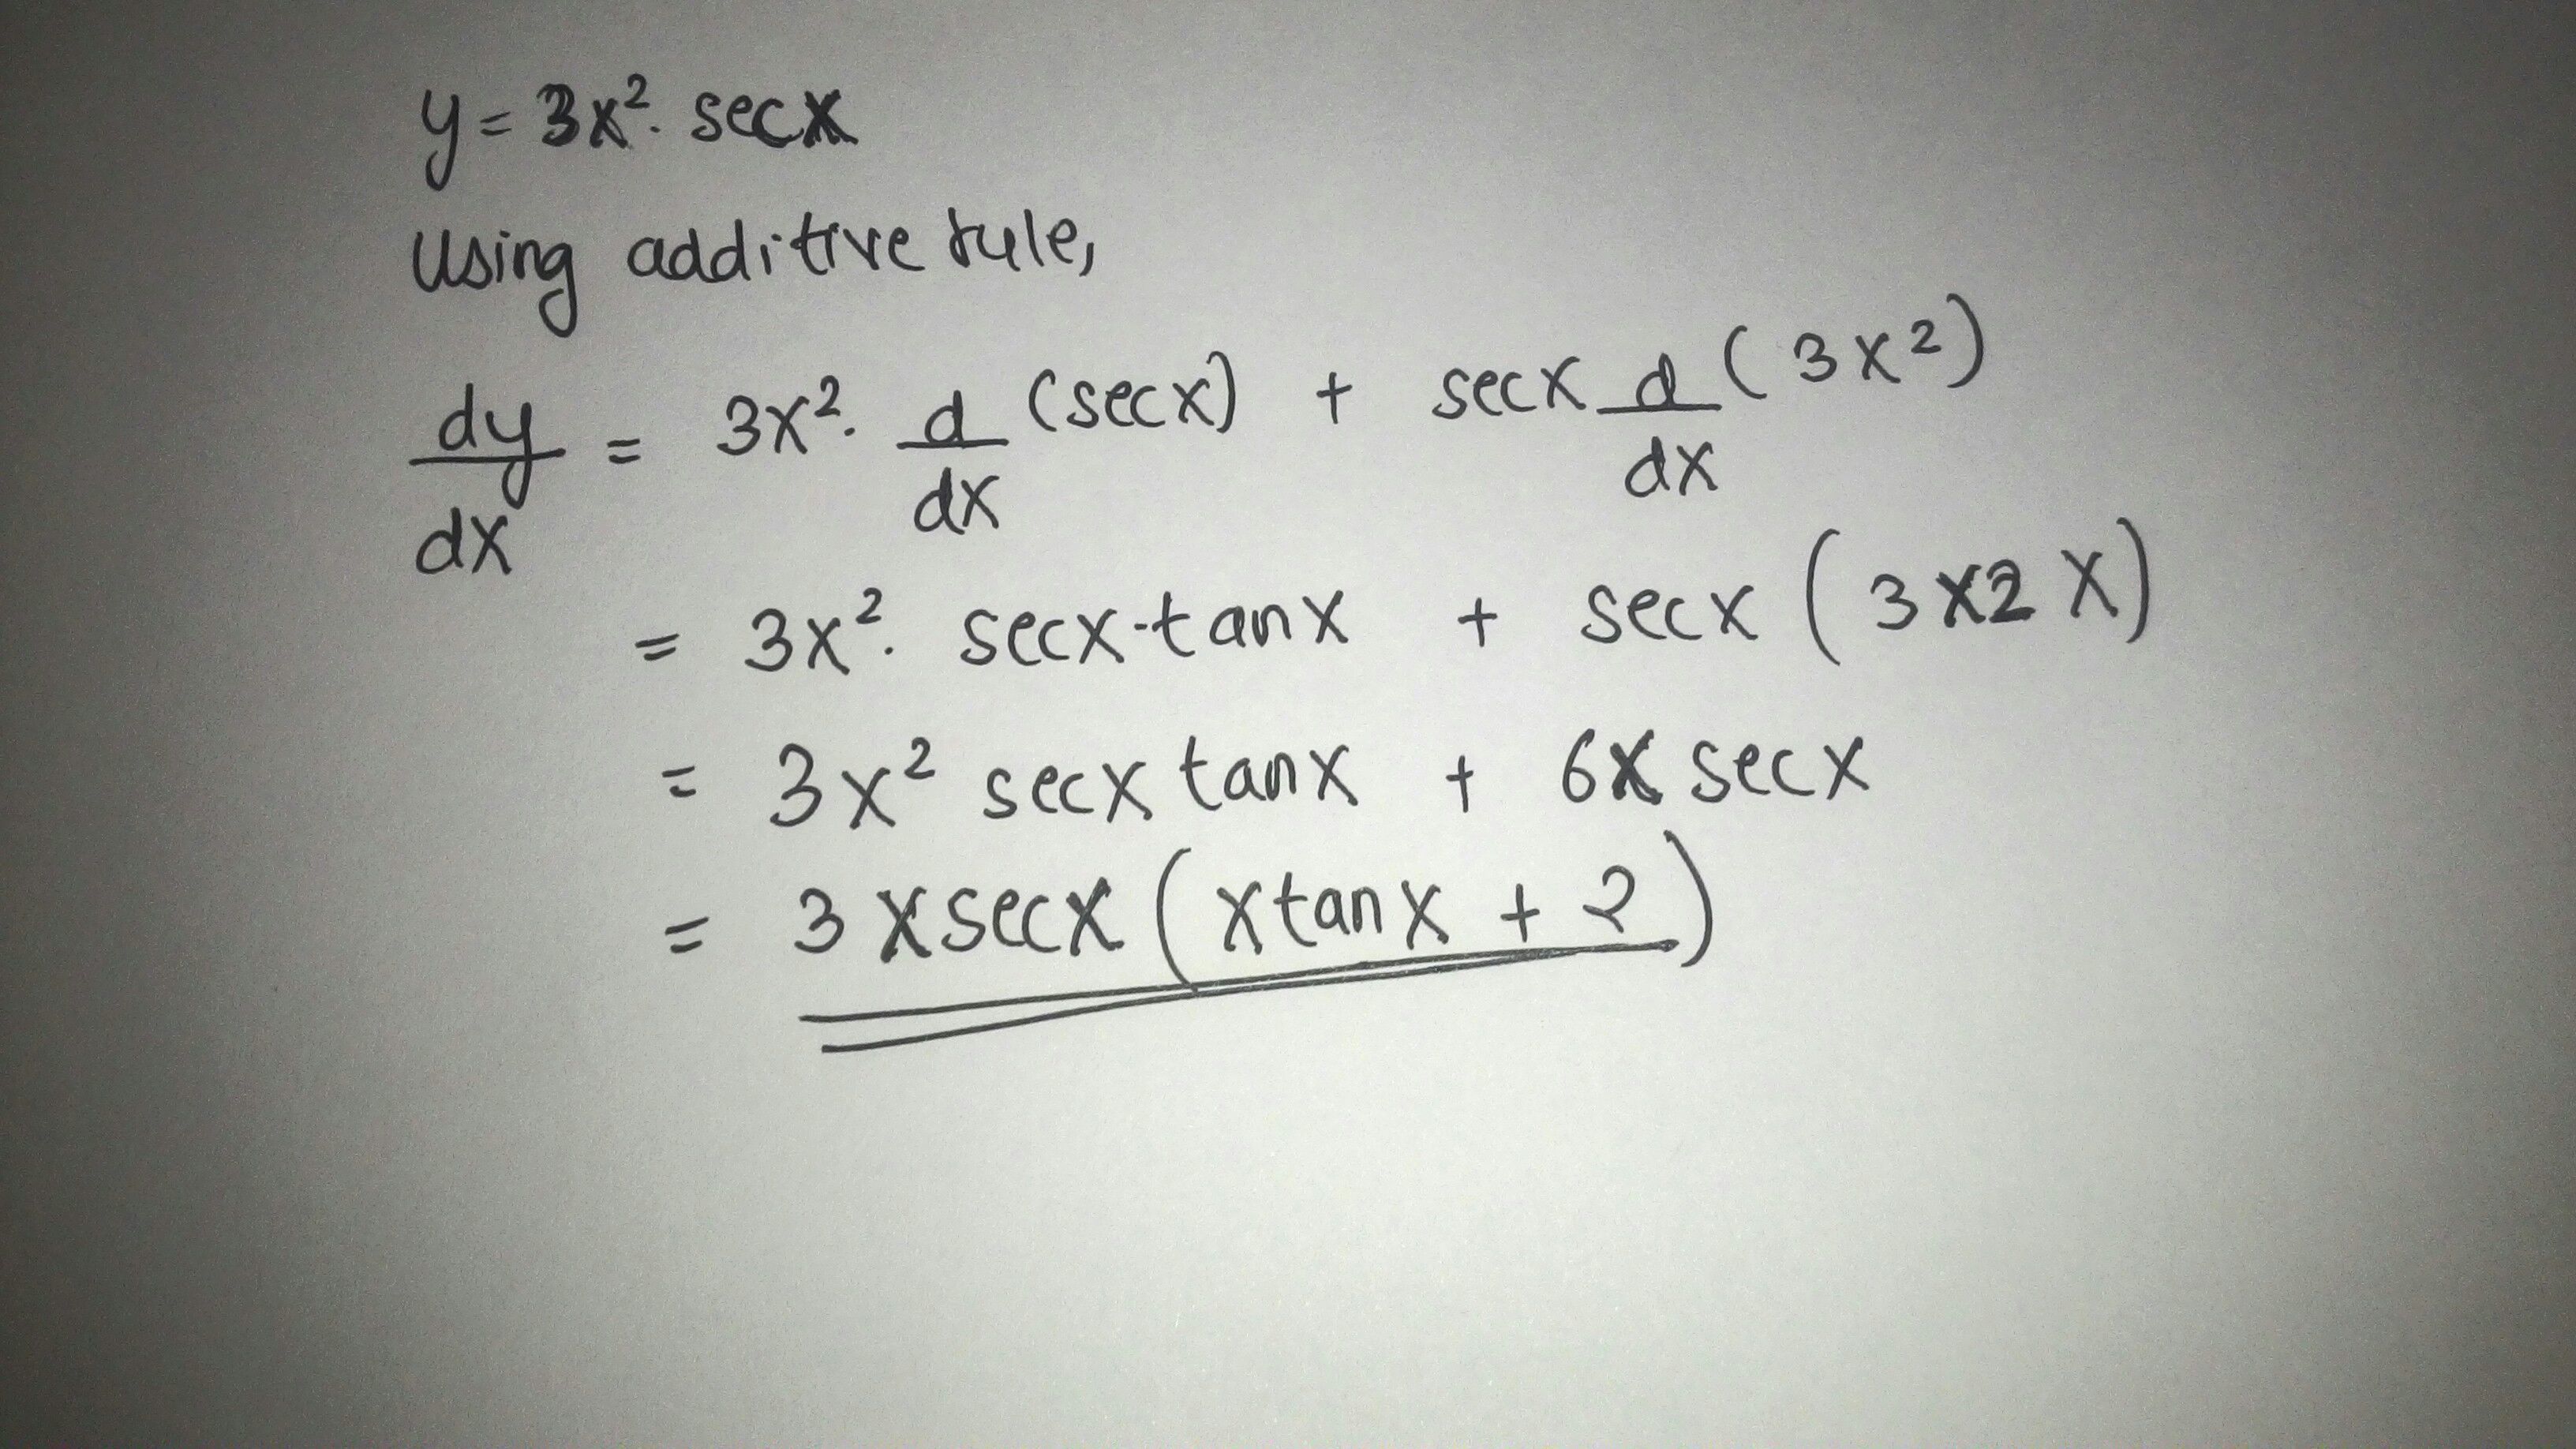 y = 3x². secx
Using additive rule,
dy/dx = 3x². d/dx (secx) + secx d/dx (3x²)
= 3x². secx·tanx + secx (3×2x)
= 3x² secx tanx + 6x secx
= 3xsecx (xtanx + 2)